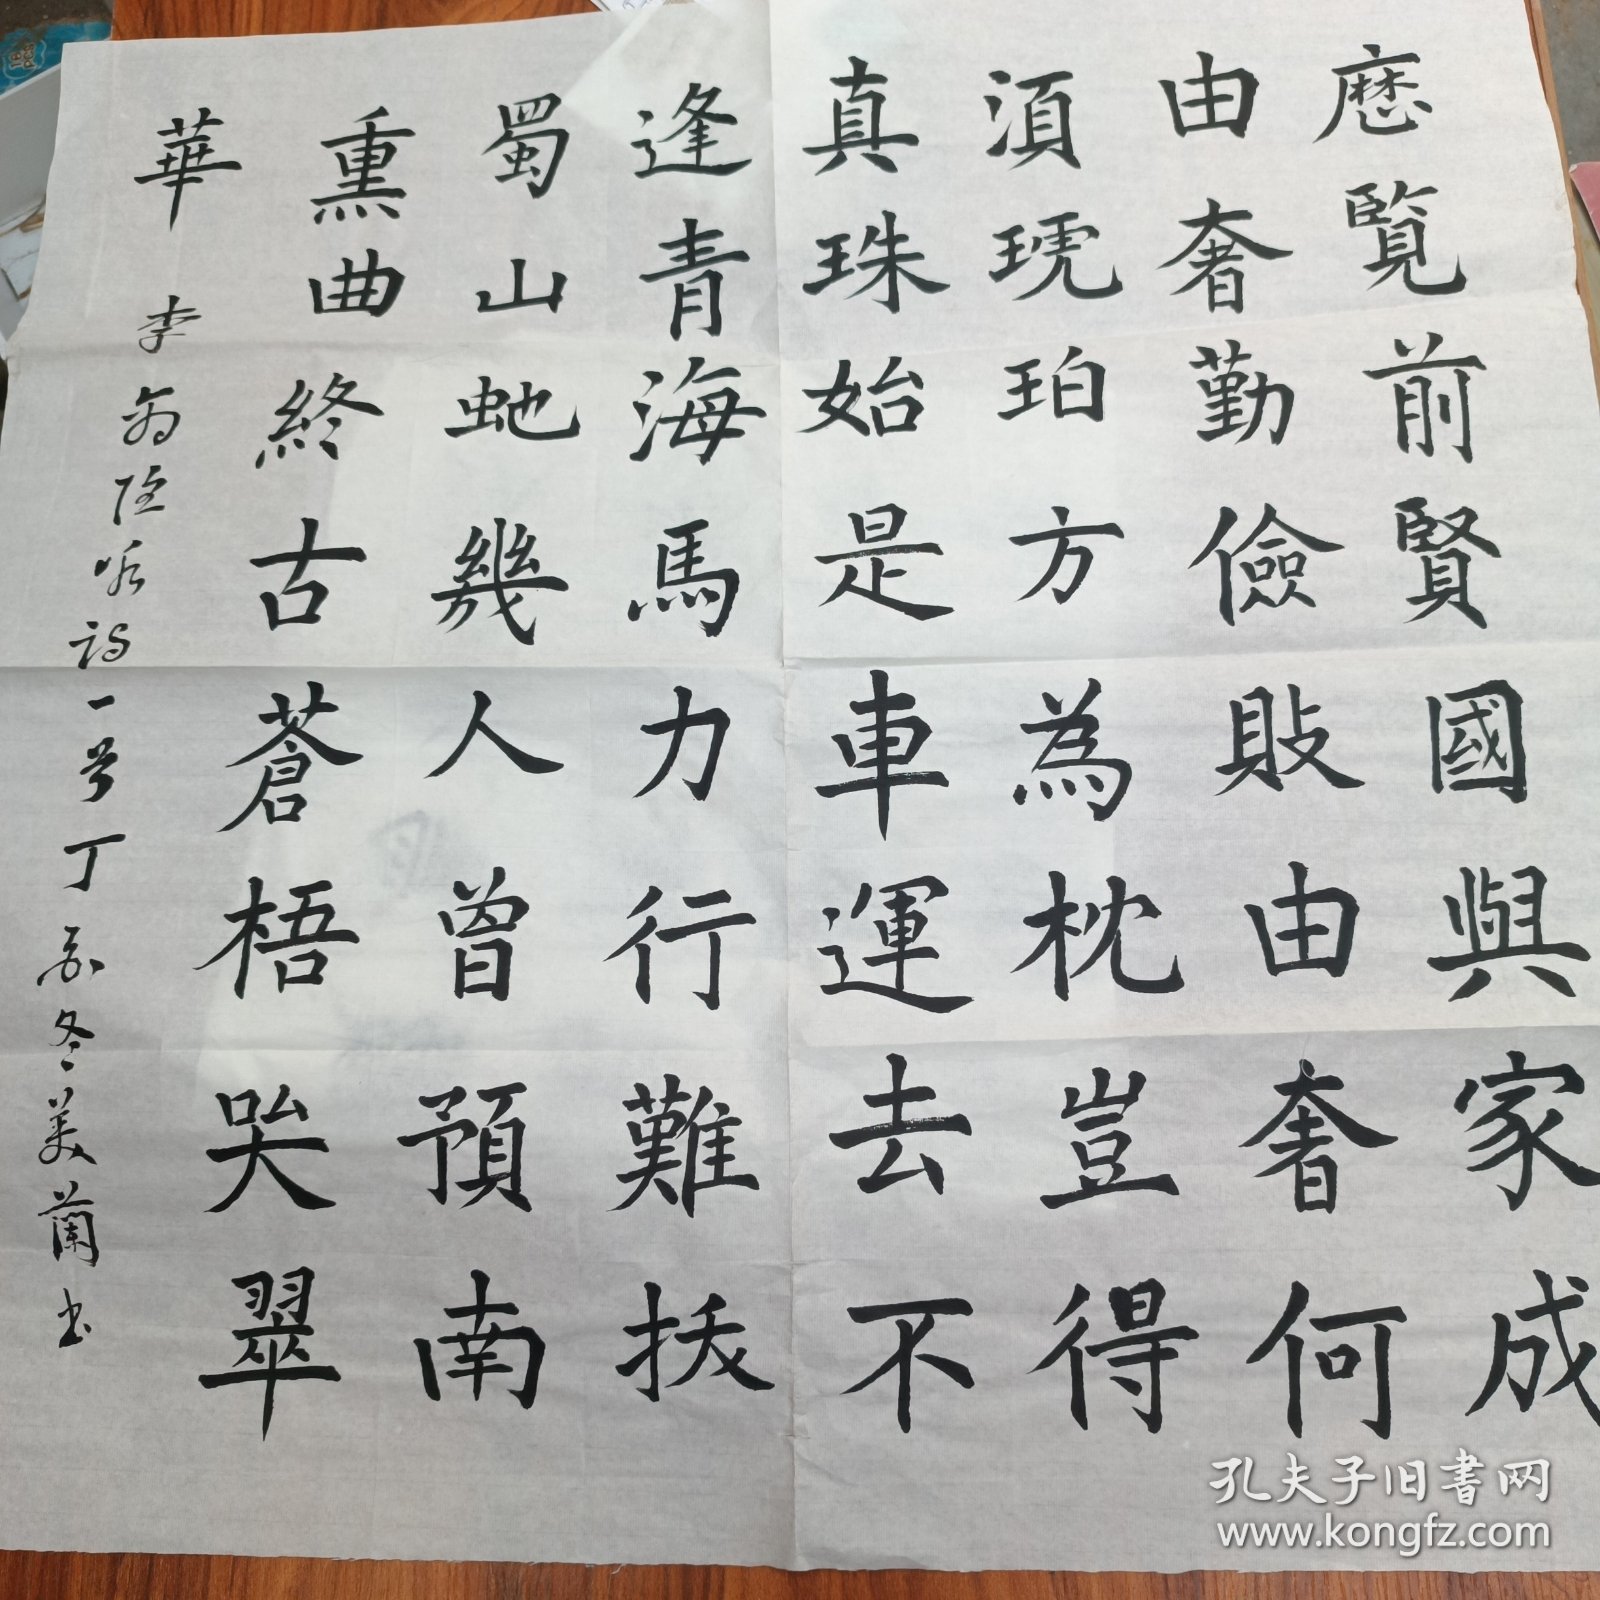 厯覽前賢國與家成
由奢勤儉敗由奢何
須琥珀方為枕豈得
真珠始是車運去不
逢青海馬力行難拔
蜀山虵幾人曾預南
熏曲終古蒼梧哭翠
華 李商隐咏诗一首丁亥冬美蘭书
孔夫子旧書网
www.kongfz.com